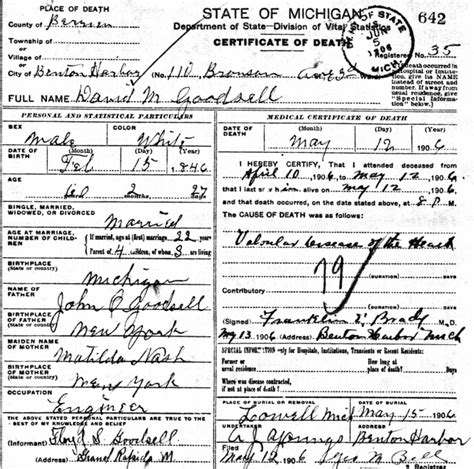 PLACE OF DEATH
County of Berrien
Township of
Village of
City of Benton Harbor (No. 110 Bronson
STATE OF MICHIGAN
Department of State—Division of Vital Statistics
CERTIFICATE OF DEATH
642
Registered No. 35
FULL NAME David M. Goodsell
PERSONAL AND STATISTICAL PARTICULARS
SEX Male
COLOR White
DATE OF BIRTH Feb 15 1846
(Month) (Day) (Year)
AGE 60 2 27
SINGLE, MARRIED, WIDOWED, OR DIVORCED
Married
AGE AT MARRIAGE, NUMBER OF CHILDREN
If married, age at (first) marriage 22 years
Parent of 4 children, of whom 3 are living
BIRTHPLACE
(State or country) Michigan
NAME OF FATHER John P Goodsell
BIRTHPLACE OF FATHER
(State or country) New York
MAIDEN NAME OF MOTHER Matilda Nash
BIRTHPLACE OF MOTHER
(State or country) New York
OCCUPATION Engineer
THE ABOVE STATED PERSONAL PARTICULARS ARE TRUE TO THE BEST OF MY KNOWLEDGE AND BELIEF
(Informant) Floyd S. Goodsell
Grand Rapids M
MEDICAL CERTIFICATE OF DEATH
DATE OF DEATH
May 12 1906
(Month) (Day) (Year)
I HEREBY CERTIFY, That I attended deceased from
April 10 1906 to May 12, 1906,
that I last saw him alive on May 12 1906,
and that death occurred, on the date stated above, at 8 P.M.
The CAUSE OF DEATH was as follows:
Valvular disease of the Heart
79
(DURATION) DAYS
Contributory
(Signed) Franklin Brady M.D.
May 13 1906 (Address) Benton Harbor Mich
SPECIAL INFORMATION only for Hospitals, Institutions, Transients or Recent Residents:
Former or usual residence
How long at place of death?
Where was disease contracted, if not at place of death?
PLACE OF BURIAL OR REMOVAL
Lowell Mich
May 15 1906
Benton Harbor
May 12 1906